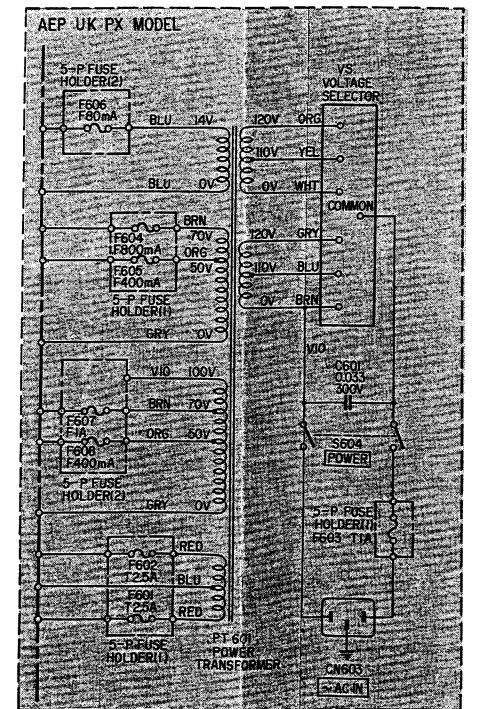 AEP UK PX MODEL
5-P FUSE
HOLDER(2)
F606
F80mA
BLU 14V
BLU 0V
BRN
70V
F604
F800mA
ORG
50V
F605
F400mA
5-P FUSE
HOLDER(1)
GRY 0V
VIO 100V
BRN 70V
F607
F1A
ORG 50V
F608
F400mA
5-P FUSE
HOLDER(2)
GRY 0V
RED
F602
T2.5A
BLU
F601
T2.5A
RED
5-P FUSE
HOLDER(1)
PT601
POWER
TRANSFORMER
VS
VOLTAGE
SELECTOR
120V ORG
110V YEL
0V WHT
COMMON
120V GRY
110V BLU
0V BRN
VIO
C601
0.033
300V
S604
POWER
5-P FUSE
HOLDER(1)
F603 T1A
CN603
~AC IN